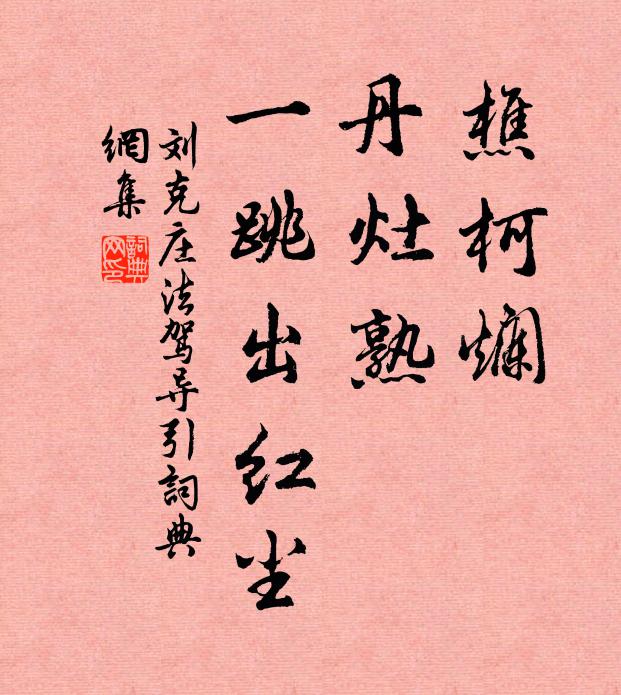 樵柯爛
丹灶熟
一跳出红尘
刘克庄法驾导引詞典
網集
詞典
网印